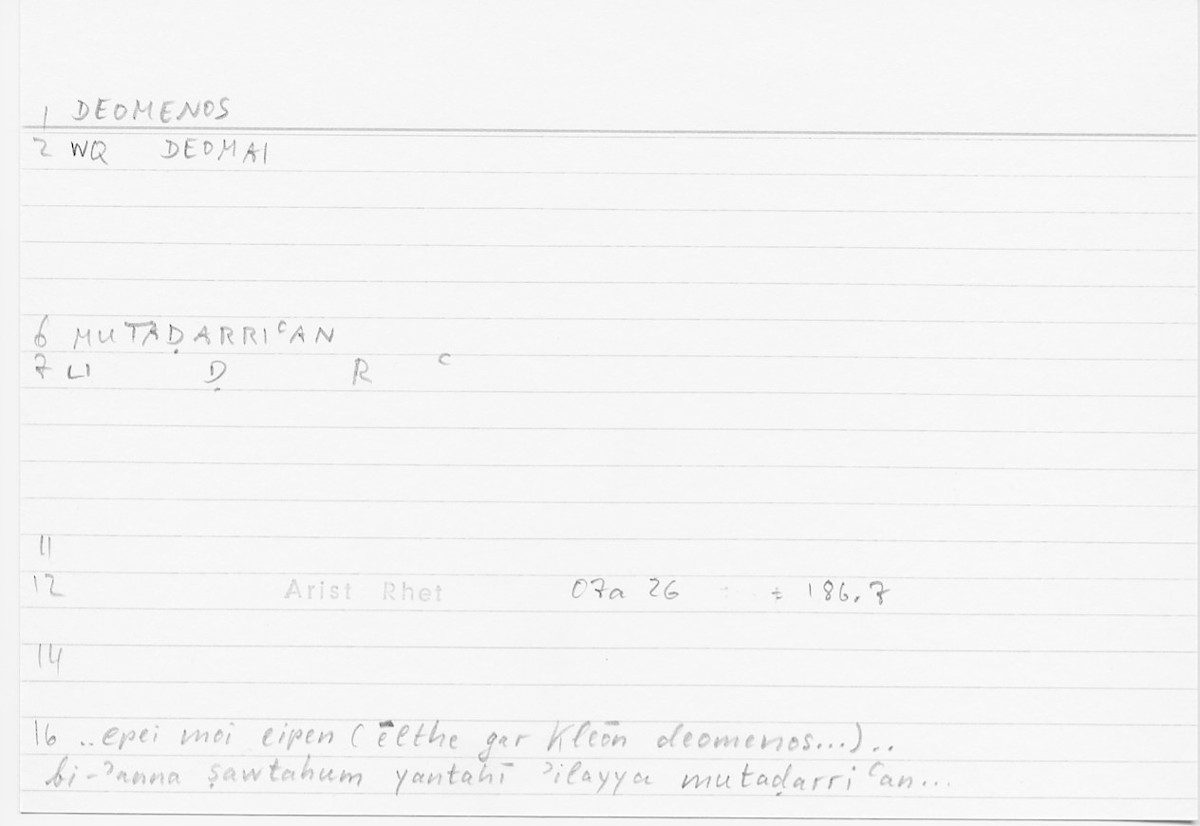 1 DEOMENOS
2 WQ DEOMAI
6 MUTAḌARRIᶜAN
7 LI Ḍ R ᶜ
11
12 Arist Rhet 07a 26 = 186.7
14
16 ..epei moi eipen (ēlthe gar Kleōn deomenos...)..
bi-ʾanna ṣawtahum yantahī ʾilayya mutaḍarriᶜan...